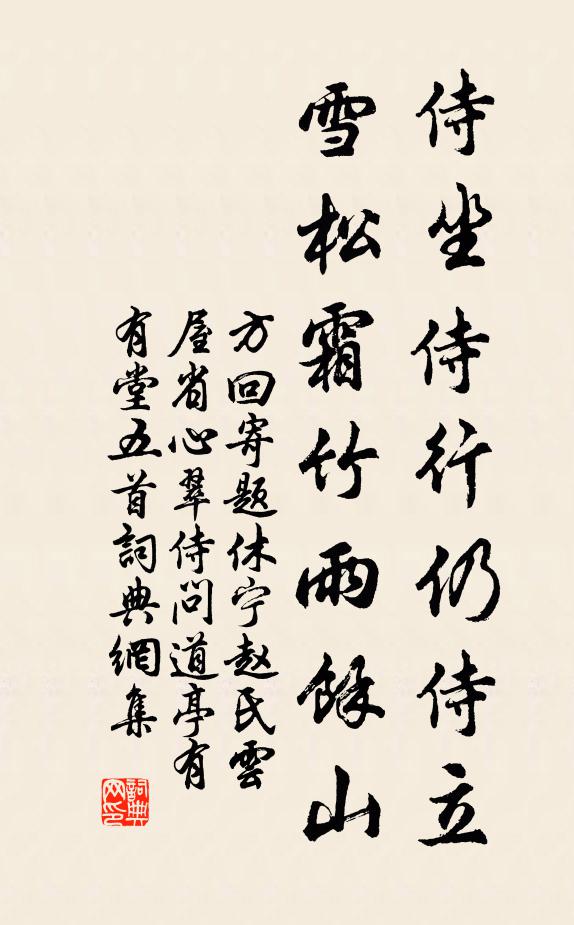 侍坐侍行仍侍立
雪松霜竹雨餘山
方回寄題休宁赵民雲
屋省心翠侍問道亭有
有堂五首詞典網集
詞典网印